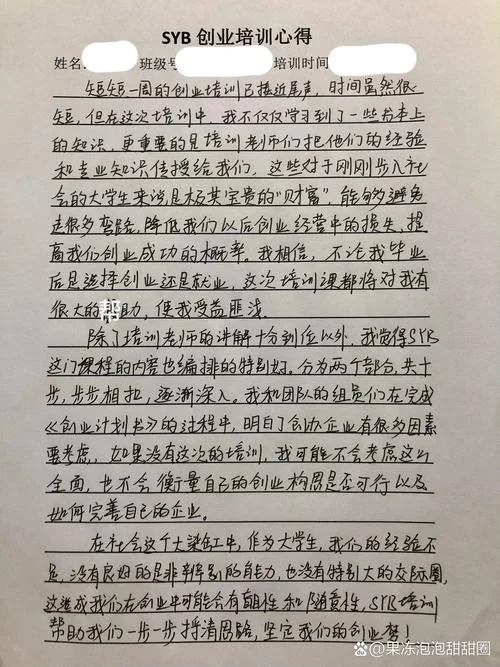 SYB 创业培训心得
姓名: 班级号 培训时间
短短一周的创业培训已接近尾声,时间虽然很
短,但在这次培训中,我不仅仅学习到了一些书本上
的知识,更重要的是培训老师们把他们的经验
和专业知识传授给我们,这些对于刚刚步入社
会的大学生来说是极其宝贵的“财富”,能够避免
走很多弯路,降低我们以后创业经营中的损失,提
高我们创业成功的概率。我相信,不论我毕业
后是选择创业还是就业,这次培训课都将对我有
很大的帮助,使我受益匪浅。
除了培训老师的讲解十分到位以外,我觉得SYB
这门课程的内容也编排的特别好。分为两个部分,共十
步,步步相扣,逐渐深入。我和团队的组员们在完成
《创业计划书》的过程中,明白了创办企业有很多因素
要考虑,如果没有这次的培训,我可能不会考虑这么
全面,也不会衡量自己的创业构思是否可行以及
如何完善自己的企业。
在社会这个大染缸中,作为大学生,我们的经验不
足,没有良好的是非辨别的能力,也没有特别大的交际圈,
这造成我们在创业中可能会有盲目性和随意性,SYB培训
帮助我们一步一步捋清思路,坚定我们的创业梦!
@果冻泡泡甜甜圈